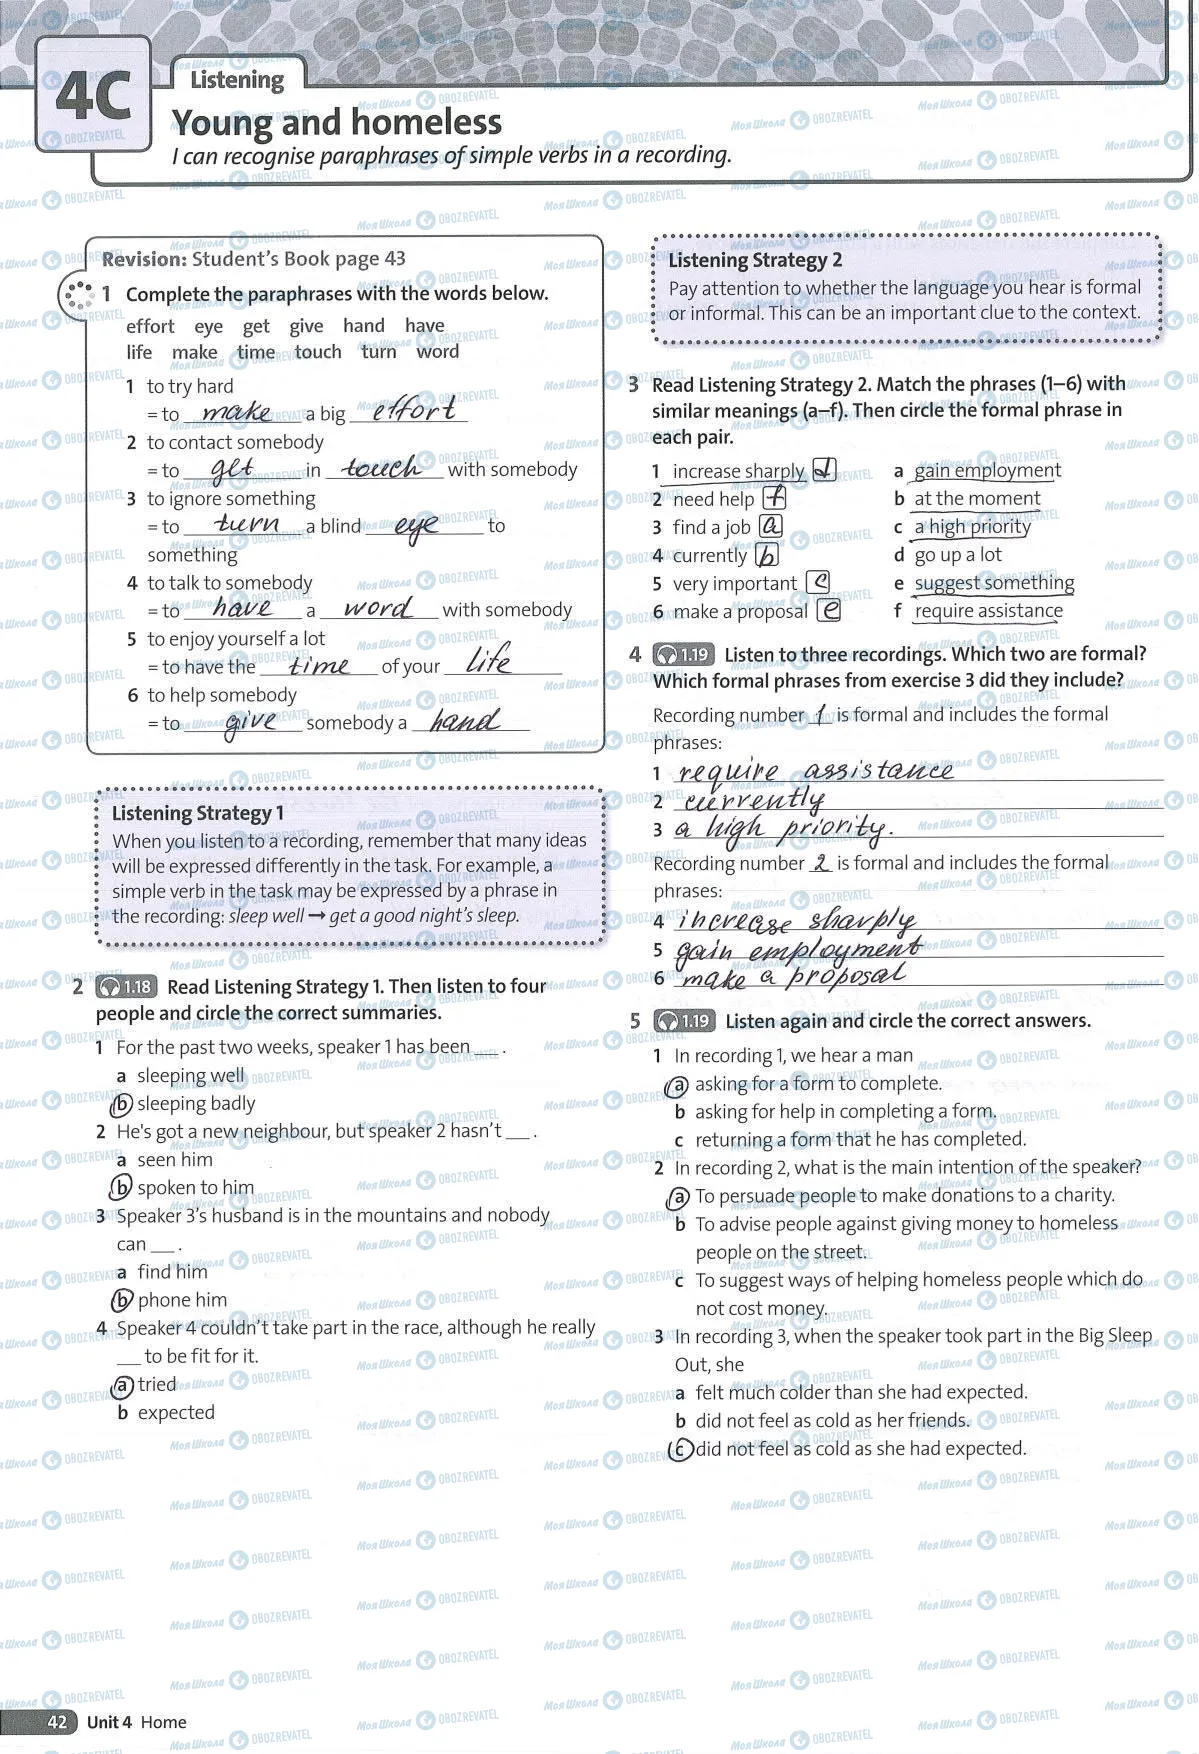 4C
Listening
Young and homeless
I can recognise paraphrases of simple verbs in a recording.
Revision: Student's Book page 43
1 Complete the paraphrases with the words below.
effort eye get give hand have
life make time touch turn word
1 to try hard
= to make a big effort
2 to contact somebody
= to get in touch with somebody
3 to ignore something
= to turn a blind eye to
something
4 to talk to somebody
= to have a word with somebody
5 to enjoy yourself a lot
= to have the time of your life
6 to help somebody
= to give somebody a hand
Listening Strategy 1
When you listen to a recording, remember that many ideas
will be expressed differently in the task. For example, a
simple verb in the task may be expressed by a phrase in
the recording: sleep well → get a good night's sleep.
2 1.18 Read Listening Strategy 1. Then listen to four
people and circle the correct summaries.
1 For the past two weeks, speaker 1 has been ___ .
a sleeping well
b sleeping badly
2 He's got a new neighbour, but speaker 2 hasn't ___ .
a seen him
b spoken to him
3 Speaker 3's husband is in the mountains and nobody
can ___ .
a find him
b phone him
4 Speaker 4 couldn't take part in the race, although he really
___ to be fit for it.
a tried
b expected
Listening Strategy 2
Pay attention to whether the language you hear is formal
or informal. This can be an important clue to the context.
3 Read Listening Strategy 2. Match the phrases (1–6) with
similar meanings (a–f). Then circle the formal phrase in
each pair.
1 increase sharply d a gain employment
2 need help f b at the moment
3 find a job a c a high priority
4 currently b d go up a lot
5 very important c e suggest something
6 make a proposal e f require assistance
4 1.19 Listen to three recordings. Which two are formal?
Which formal phrases from exercise 3 did they include?
Recording number 1 is formal and includes the formal
phrases:
1 require assistance
2 currently
3 a high priority.
Recording number 2 is formal and includes the formal
phrases:
4 increase sharply
5 gain employment
6 make a proposal
5 1.19 Listen again and circle the correct answers.
1 In recording 1, we hear a man
a asking for a form to complete.
b asking for help in completing a form.
c returning a form that he has completed.
2 In recording 2, what is the main intention of the speaker?
a To persuade people to make donations to a charity.
b To advise people against giving money to homeless
people on the street.
c To suggest ways of helping homeless people which do
not cost money.
3 In recording 3, when the speaker took part in the Big Sleep
Out, she
a felt much colder than she had expected.
b did not feel as cold as her friends.
c did not feel as cold as she had expected.
42 Unit 4 Home
Моя Школа OBOZREVATEL